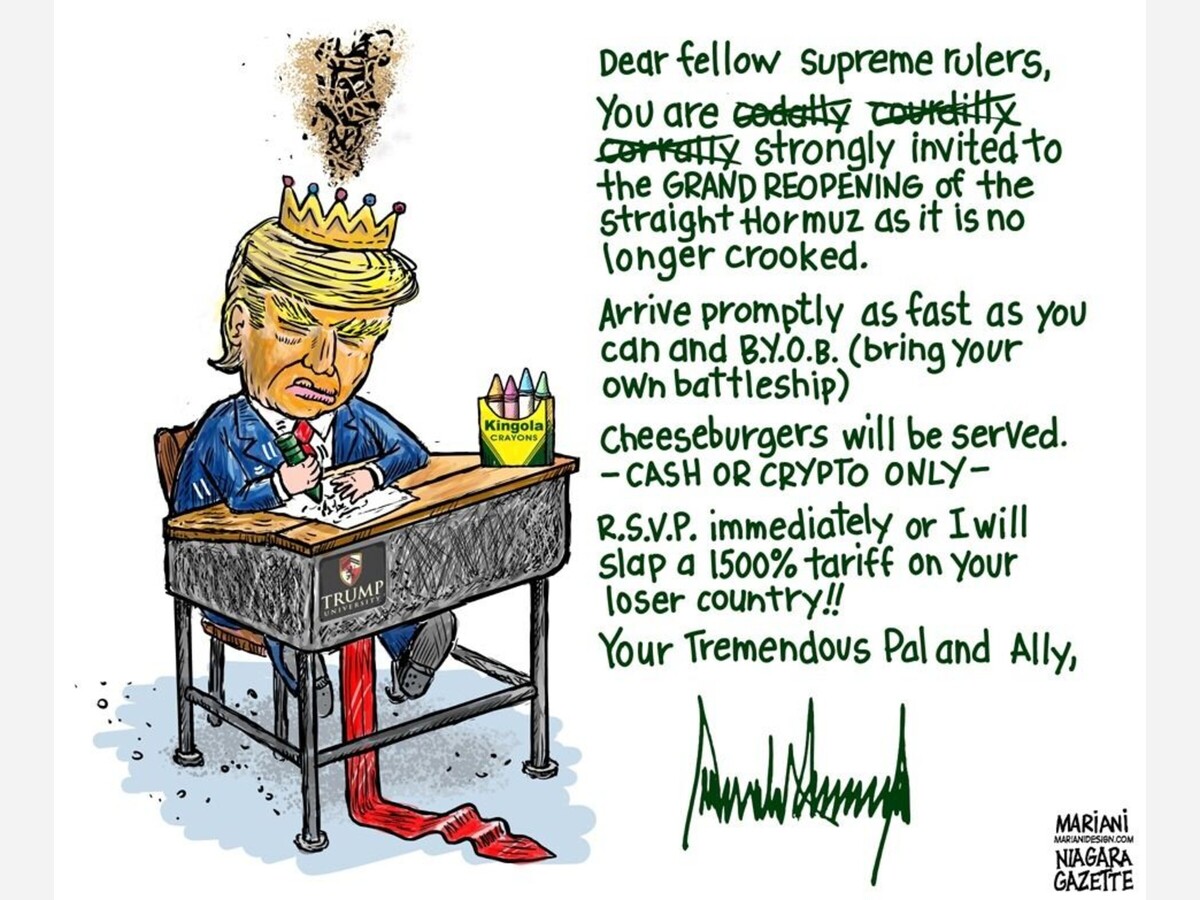 Dear fellow supreme rulers,
You are codally courdilly
corrally strongly invited to
the GRAND REOPENING of the
straight Hormuz as it is no
longer crooked.
Arrive promptly as fast as you
can and B.Y.O.B. (bring your
own battleship)
Cheeseburgers will be served.
- CASH OR CRYPTO ONLY -
R.S.V.P. immediately or I will
slap a 1500% tariff on your
loser country!!
Your Tremendous Pal and Ally,
Kingola
CRAYONS
TRUMP
UNIVERSITY
MARIANI
MARIANIDESIGN.COM
NIAGARA
GAZETTE